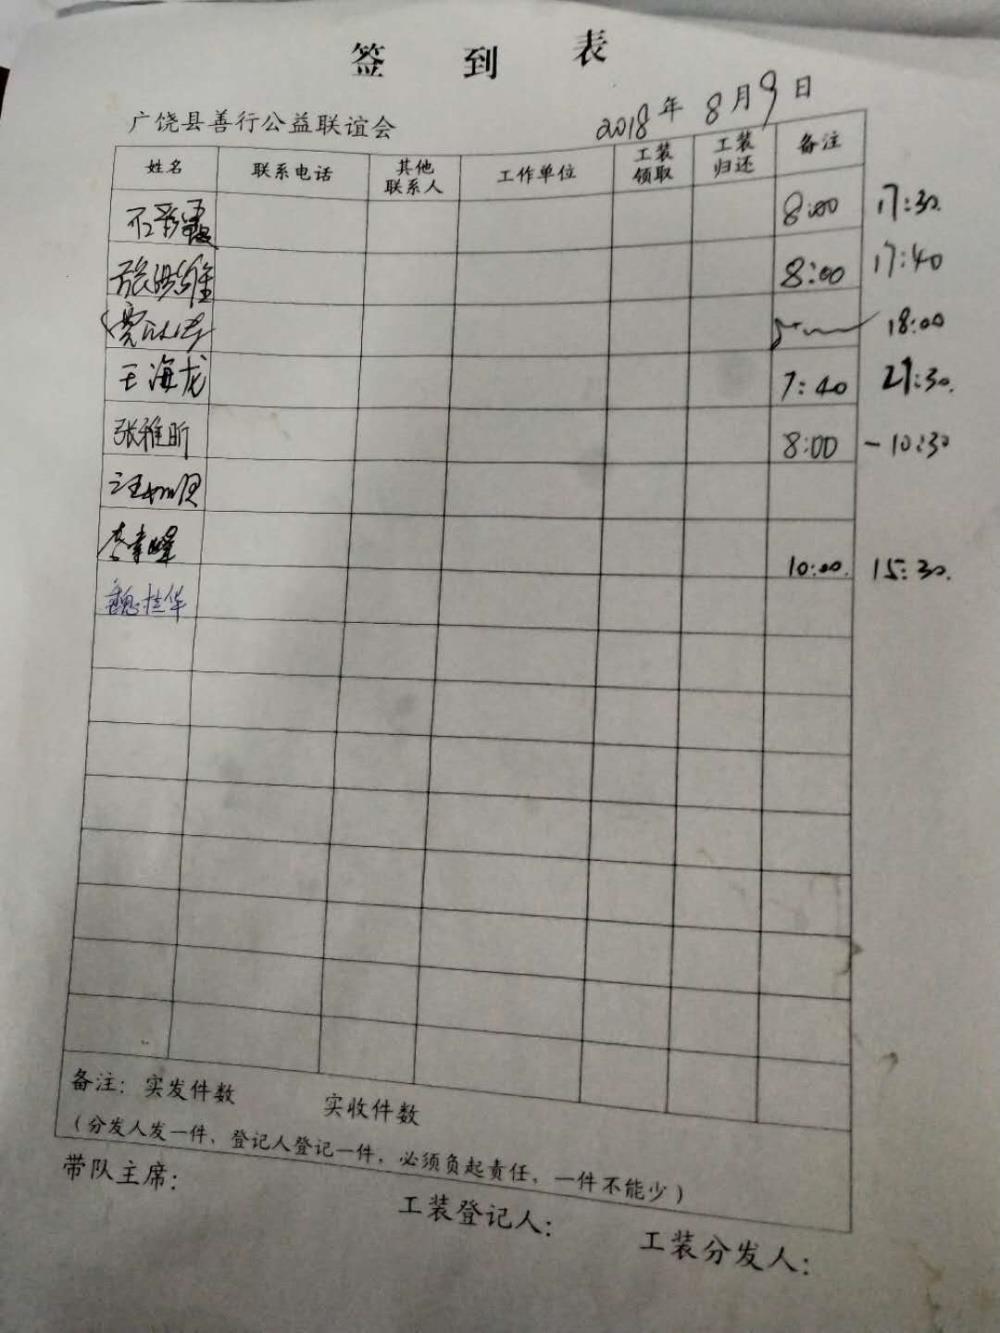 签到表
广饶县善行公益联谊会 2018年8月9日
姓名 联系电话 其他联系人 工作单位 工装领取 工装归还 备注
石彩霞 8:00 17:30.
8:00 17:40
18:00
王海龙 7:40 21:30.
张雅昕 8:00 -10:30
10:00. 15:30.
魏桂华
备注: 实发件数 实收件数
(分发人发一件、登记人登记一件，必须负起责任，一件不能少)
带队主席: 工装登记人: 工装分发人: